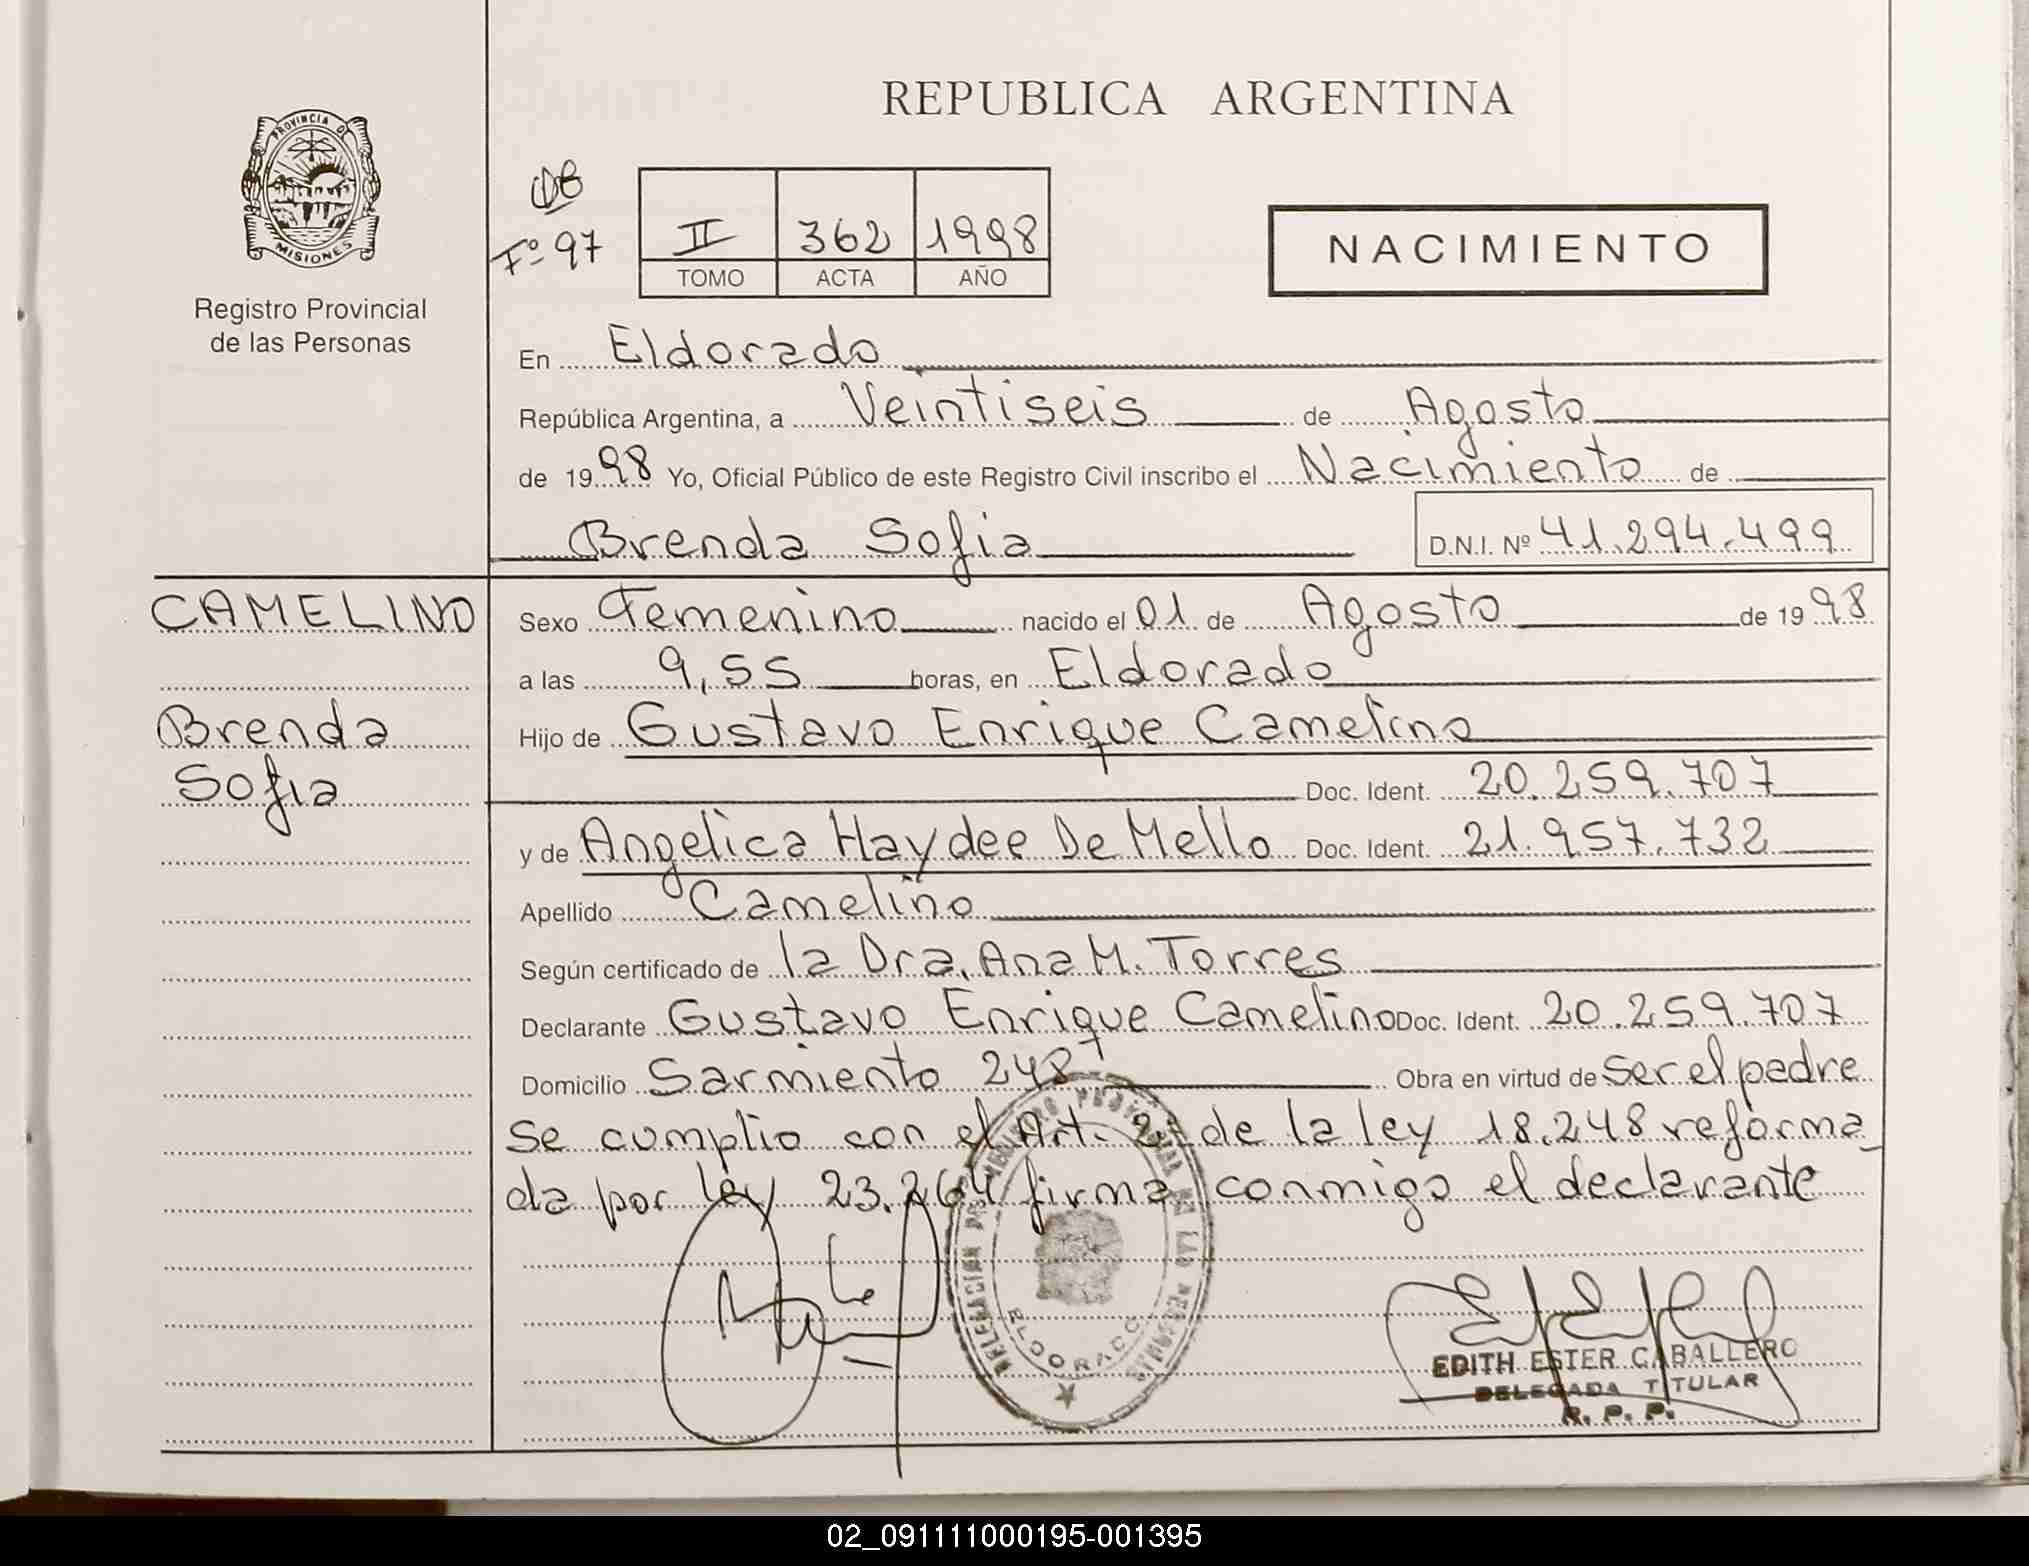 REPUBLICA ARGENTINA
PROVINCIA DE
MISIONES
Registro Provincial
de las Personas
Fº 97
II 362 1998
TOMO ACTA AÑO
NACIMIENTO
En Eldorado
República Argentina, a Veintiseis de Agosto
de 1998 Yo, Oficial Público de este Registro Civil inscribo el Nacimiento de
Brenda Sofia D.N.I. Nº 41.294.499
CAMELINO
Brenda
Sofia
Sexo Femenino nacido el 01 de Agosto de 1998
a las 9,55 horas, en Eldorado
Hijo de Gustavo Enrique Camelino
Doc. Ident. 20.259.707
y de Angelica Haydee De Mello Doc. Ident. 21.957.732
Apellido Camelino
Según certificado de la Dra. Ana M. Torres
Declarante Gustavo Enrique Camelino Doc. Ident. 20.259.707
Domicilio Sarmiento 248 Obra en virtud de ser el padre
Se cumplio con el Art. 2º de la ley 18.248 reforma_
da por ley 23.264 firma conmigo el declarante
DELEGACION DEL REGISTRO PROVINCIAL DE LAS PERSONAS
ELDORADO
EDITH ESTER CABALLERO
DELEGADA TITULAR
R. P. P.
02_091111000195-001395